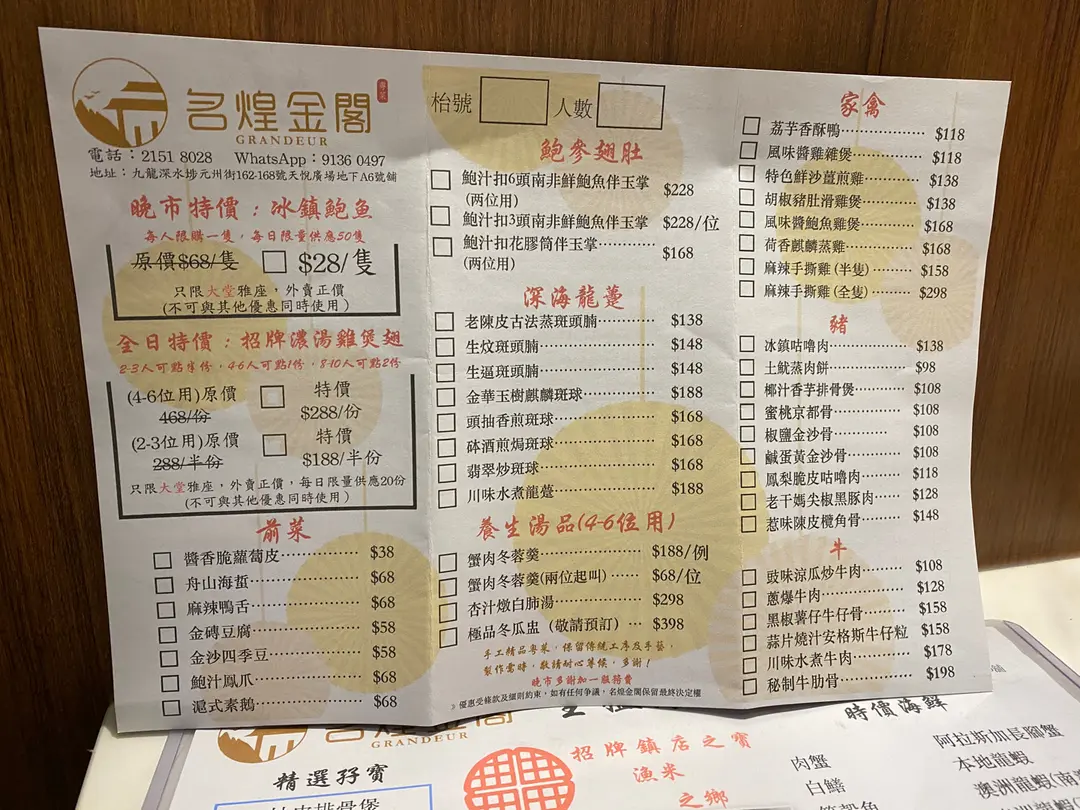 名煌金閣
粵菜
GRANDEUR
電話：2151 8028 WhatsApp：9136 0497
地址：九龍深水埗元州街162-168號天悅廣場地下A6號舖
晚市特價：冰鎮鮑魚
每人限購一隻，每日限量供應50隻
原價$68/隻 $28/隻
只限大堂雅座，外賣正價
(不可與其他優惠同時使用)
全日特價：招牌濃湯雞煲翅
2-3人可點半份，4-6人可點1份，8-10人可點2份
(4-6位用)原價 特價
468/份 $288/份
(2-3位用)原價 特價
288/半份 $188/半份
只限大堂雅座，外賣正價，每日限量供應20份
(不可與其他優惠同時使用)
前菜
醬香脆蘿蔔皮 $38
舟山海蜇 $68
麻辣鴨舌 $68
金磚豆腐 $58
金沙四季豆 $58
鮑汁鳳爪 $68
滬式素鵝 $68
枱號 人數
鮑參翅肚
鮑汁扣6頭南非鮮鮑魚伴玉掌 $228
(两位用)
鮑汁扣3頭南非鮮鮑魚伴玉掌 $228/位
鮑汁扣花膠筒伴玉掌 $168
(两位用)
深海龍躉
老陳皮古法蒸斑頭腩 $138
生炆斑頭腩 $148
生逼斑頭腩 $148
金華玉樹麒麟斑球 $188
頭抽香煎斑球 $168
砵酒煎焗斑球 $168
翡翠炒斑球 $168
川味水煮龍躉 $188
養生湯品(4-6位用)
蟹肉冬蓉羹 $188/例
蟹肉冬蓉羹(兩位起叫) $68/位
杏汁燉白肺湯 $298
極品冬瓜盅（敬請預訂） $398
手工精品粵菜，保留傳統工序及手藝，
製作需時，敬請耐心等候，多謝！
晚市多謝加一服務費
優惠受條款及細則約束，如有任何爭議，名煌金閣保留最終決定權
家禽
荔芋香酥鴨 $118
風味醬雞雜煲 $118
特色鮮沙薑煎雞 $138
胡椒豬肚滑雞煲 $138
風味醬鮑魚雞煲 $168
荷香麒麟蒸雞 $168
麻辣手撕雞 (半隻) $158
麻辣手撕雞 (全隻) $298
豬
冰鎮咕嚕肉 $138
土魷蒸肉餅 $98
椰汁香芋排骨煲 $108
蜜桃京都骨 $108
椒鹽金沙骨 $108
鹹蛋黃金沙骨 $108
鳳梨脆皮咕嚕肉 $118
老干媽尖椒黑豚肉 $128
惹味陳皮欖角骨 $148
牛
豉味涼瓜炒牛肉 $108
蔥爆牛肉 $128
黑椒薯仔牛仔骨 $158
蒜片燒汁安格斯牛仔粒 $158
川味水煮牛肉 $178
秘制牛肋骨 $198
GRANDEUR
精選孖寶
招牌鎮店之寶
漁米
之鄉
時價海鮮
肉蟹
白鱔
阿拉斯加長腳蟹
本地龍蝦
澳洲龍蝦(南